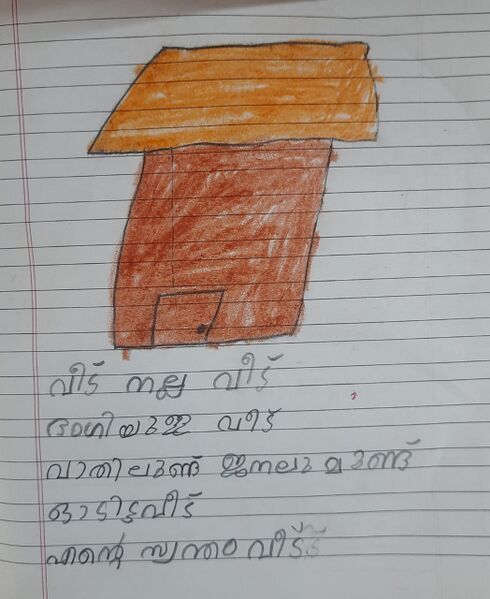 വീട് നല്ല വീട്
ഭംഗിയുള്ള വീട്
വാതിലുണ്ട് ജനലുമുണ്ട്
ഓടിട്ടവീട്
എൻ്റെ സ്വന്തം വീട്